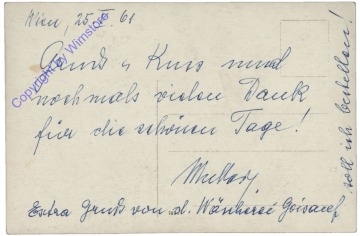 Wien, 25. VI 61
Gruß & Kuss und
nochmals vielen Dank
für die schönen Tage!
Mutti
Extra Gruß von d.
soll ich bestellen!
Copyright by Wimstore